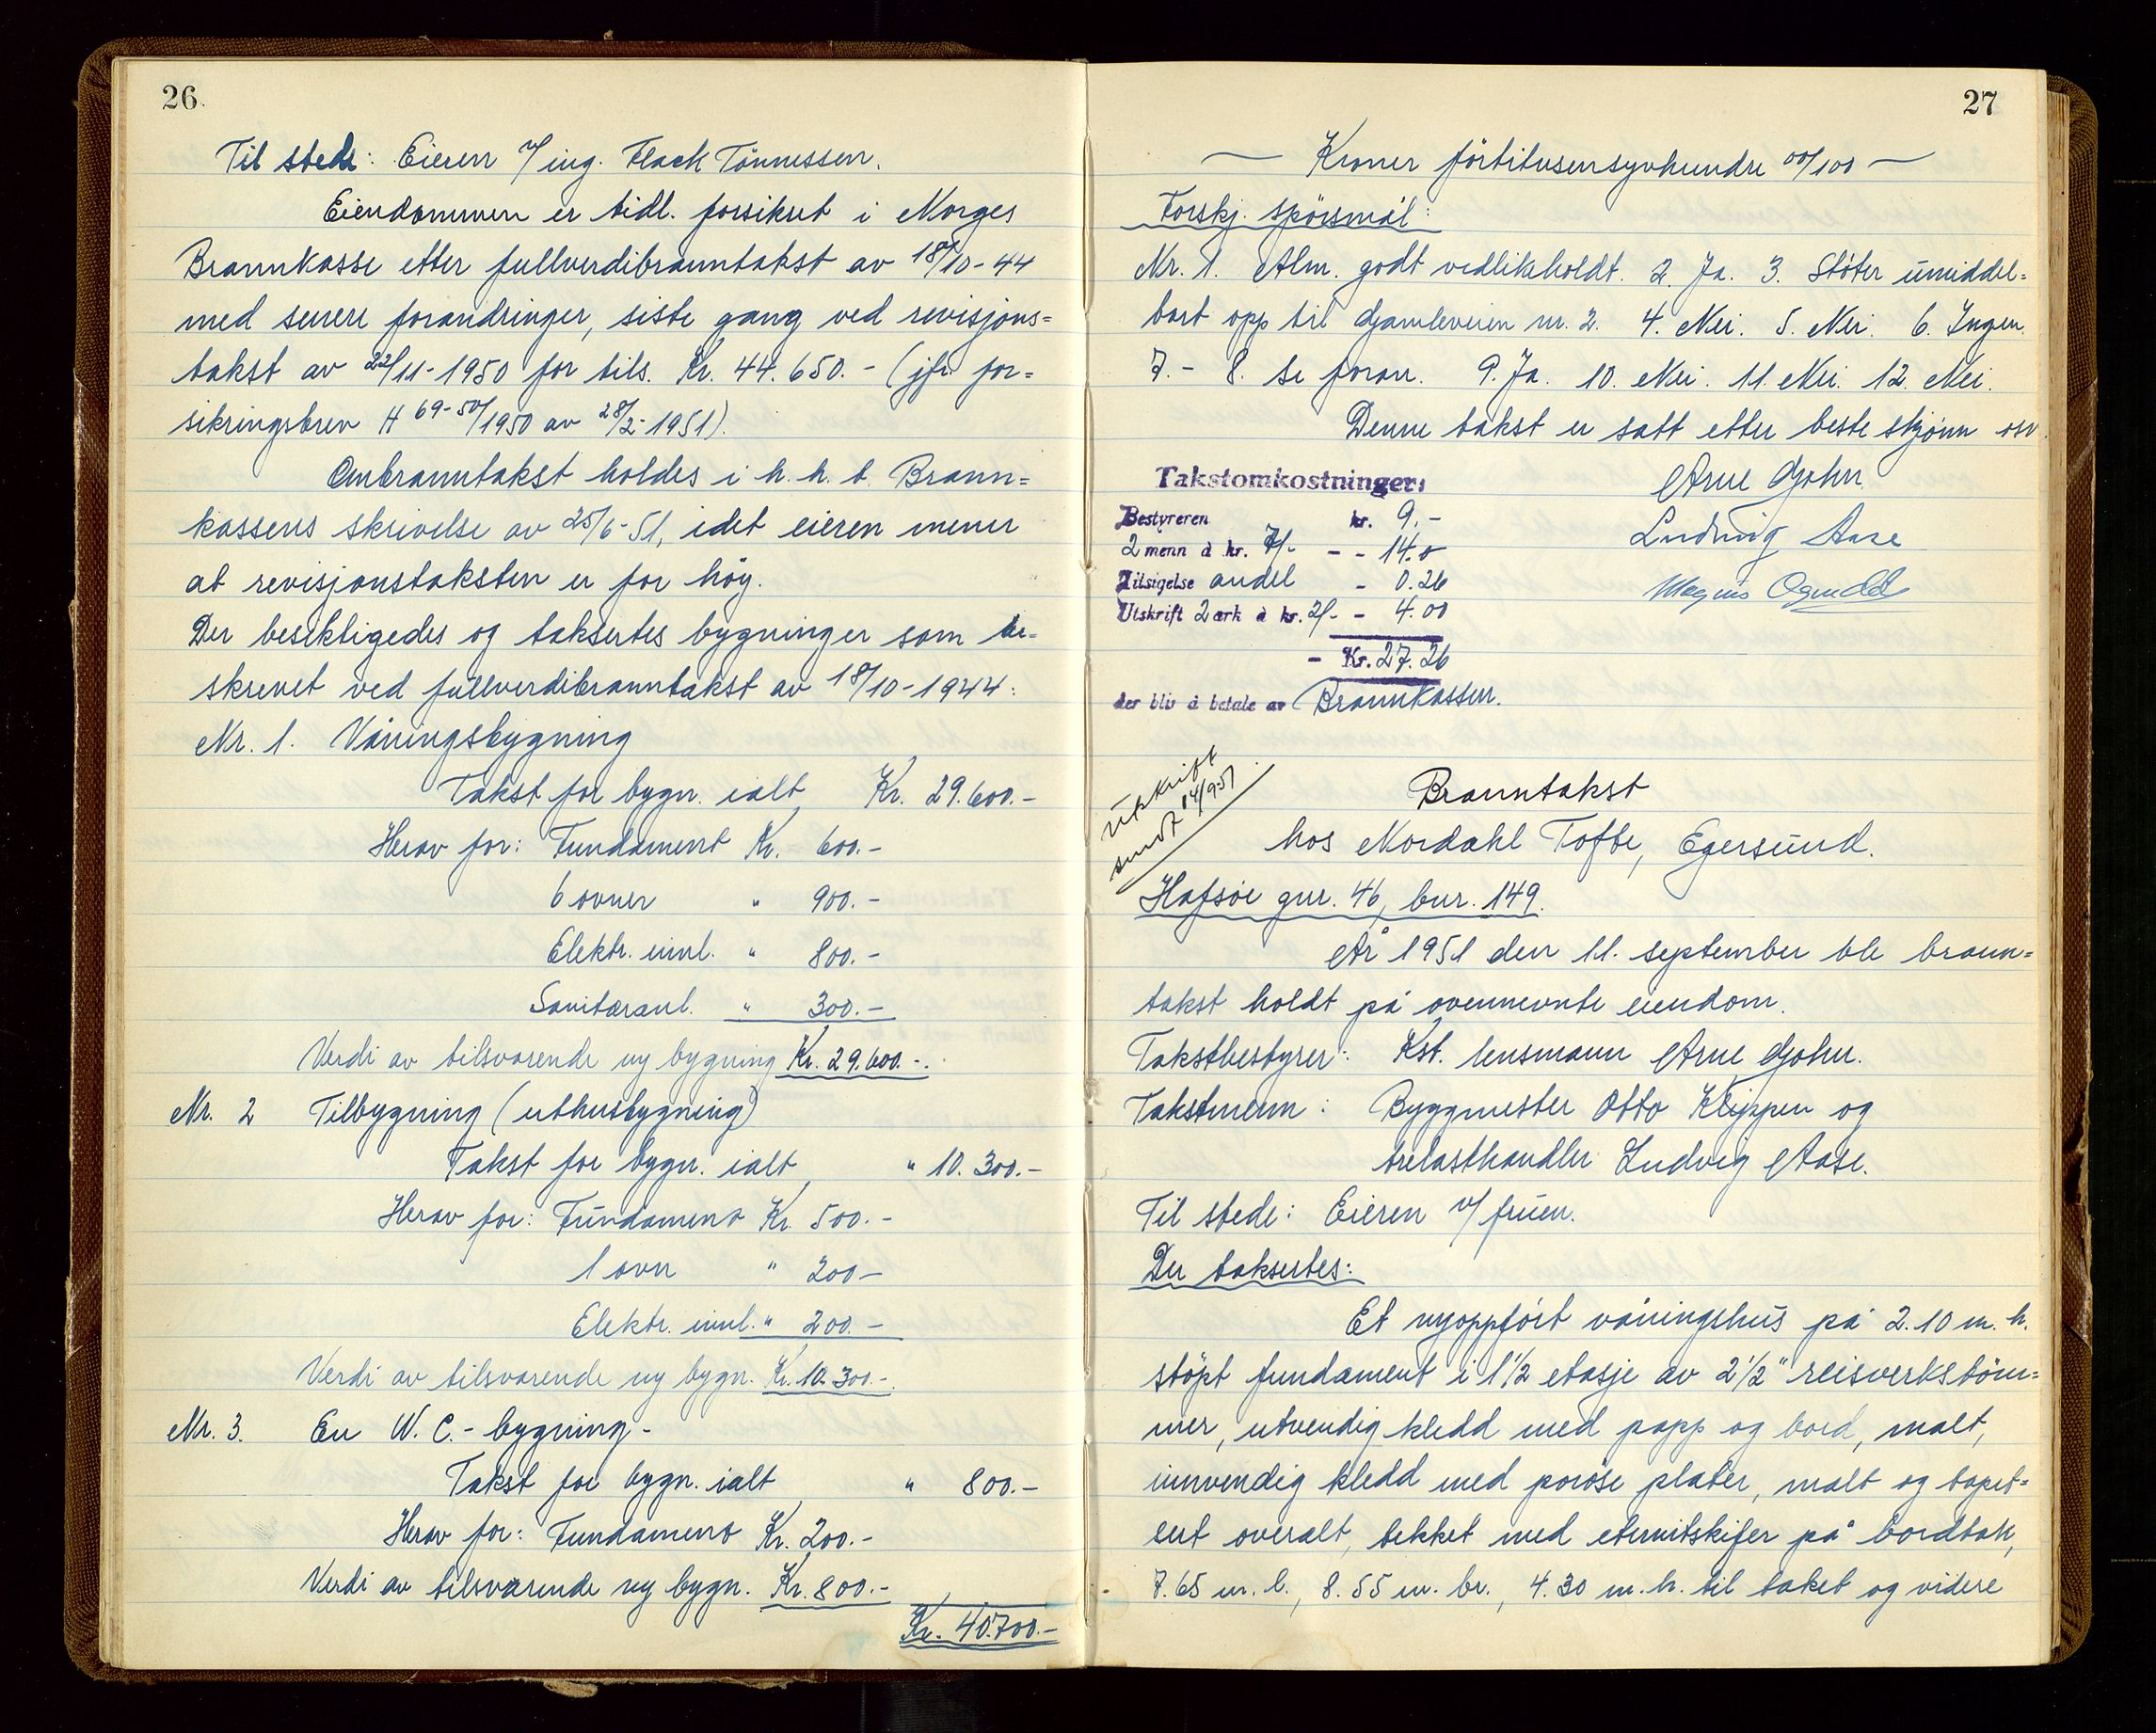 26.
Til stede: Eieren v/ ing. Flack Tönnessen.
Eiendommen er tidl. forsikret i Norges
Brannkasse etter fullverdibranntakst av 18/10-44
med senere forandringer, siste gang ved revisjons=
takst av 22/11-1950 for tils. Kr. 44.650.- (jfr. for=
sikringsbrev H 69-50/1950 av 28/2-1951).
Ombranntakst holdes i h. h. t. Brann=
kassens skrivelse av 25/6-51, idet eieren mener
at revisjonstaksten er for höy.
Der besiktigedes og taksertes bygninger som be=
skrevet ved fullverdibranntakst av 18/10-1944:
Nr. 1. Våningsbygning
Takst for bygn. ialt Kr. 29.600.-
Herav for: Fundament Kr. 600.-
6 ovner " 900.-
Elektr. innl. " 800.-
Sanitæranl. " 300.-
Verdi av tilsvarende ny bygning Kr. 29.600.-.
Nr. 2 Tilbygning (uthusbygning)
Takst for bygn. ialt " 10.300.-
Herav for: Fundament Kr. 500.-
1 ovn " 200-
Elektr. innl. " 200.-
Verdi av tilsvarende ny bygn. Kr. 10.300.-.
Nr. 3. En W. C.- bygning-
Takst for bygn. ialt " 800.-
Herav for: Fundament Kr. 200.-
Verdi av tilsvarende ny bygn. Kr. 800.-
Kr. 40.700.-
27
— Kroner förtitusensyvhundre 00/100 —
Forskj. spörsmål:
Nr. 1. Alm. godt vedlikeholdt. 2. Ja. 3. Stöter umiddel=
bart opp til Gamleveien nr. 2. 4. Nei. 5. Nei. 6. Ingen.
7.- 8. Se foran. 9. Ja. 10. Nei. 11. Nei. 12. Nei.
Denne takst er satt etter beste skjönn osv.
Arne Gjohn
Ludvig Aase
Magnus
Takstomkostninger:
Bestyreren kr. 9.-
2 menn à kr. 7/- - - 14.0
Tilsigelse andel - 0.26
Utskrift 2 ark à kr. 2/- - 4.00
- Kr. 27.26
der bliv å betale av Brannkassen.
Utskrift
sendt 14/9-51.
Branntakst
hos Nordahl Tofte, Egersund.
Hafsöe gnr. 46, bnr. 149.
År 1951 den 11. september ble brann=
takst holdt på ovennevnte eiendom.
Takstbestyrer: Kst. lensmann Arne Gjohn.
Takstmenn: Byggmester Otto Kleppen og
trelasthandler Ludvig Aase.
Til stede: Eieren v/ fruen.
Der taksertes:
Et nyoppfört våningshus på 2.10 m. h.
stöpt fundament i 1 1/2 etasje av 2 1/2" reisverkstöm=
mer, utvendig kledd med papp og bord, malt,
innvendig kledd med poröse plater, malt og tapet=
sert overalt, tekket med eternitskifer på bordtak,
7.65 m. l., 8.55 m. br., 4.30 m. h. til taket og videre